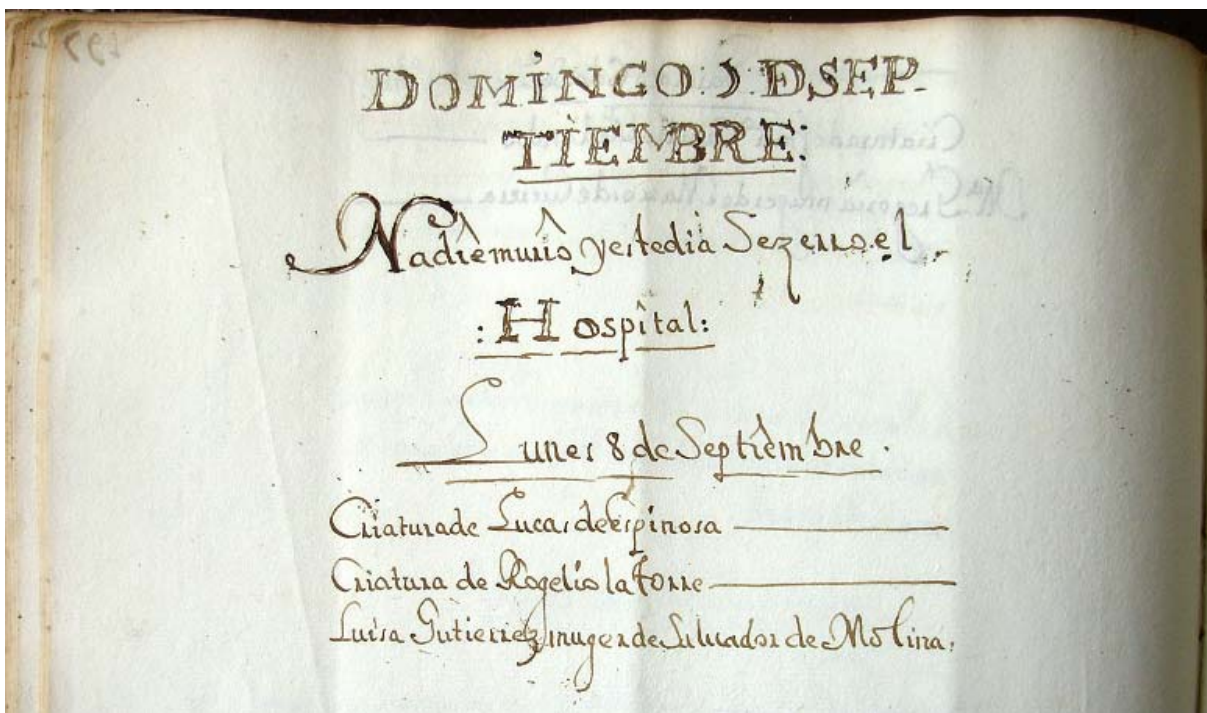 DOMINGO: 7 DSEP-
TIEMBRE:
Nadie murio y este dia Se zerro el
: Hospital:
Lunes 8 de Septiembre.
Criatura de Lucas de Espinosa
Criatura de Rogelio la torre
Luisa Gutierrez muger de Salvador de Molina.